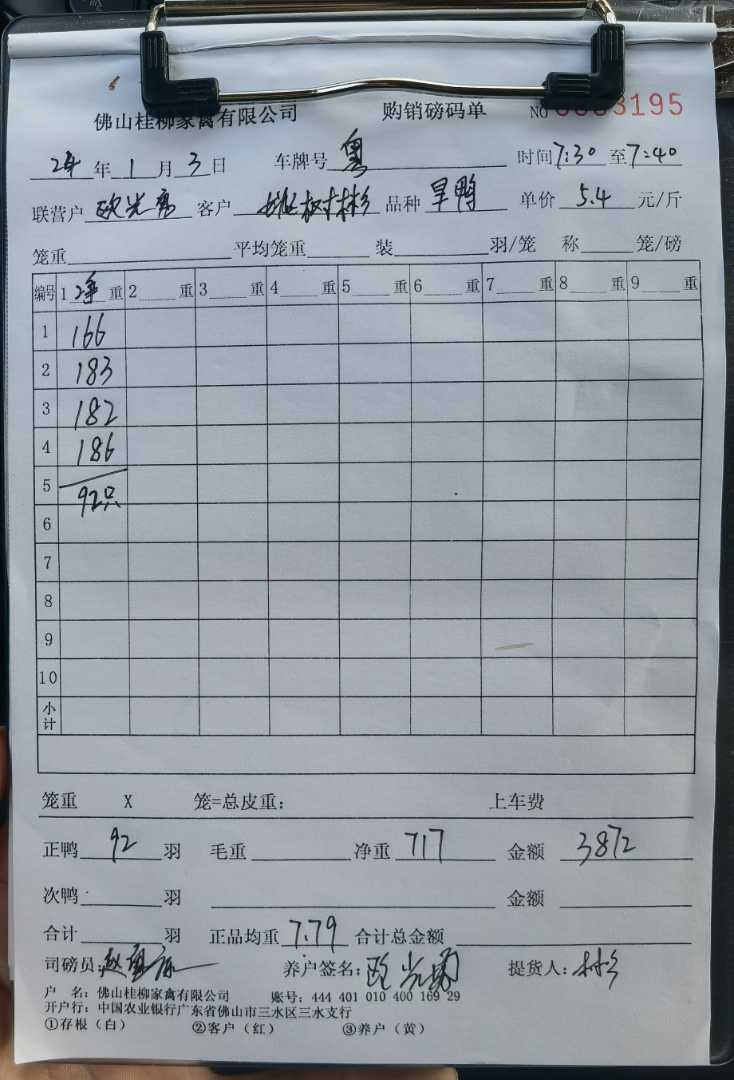 佛山桂柳家禽有限公司 购销磅码单 NO 3195
24年1月3日 车牌号 粤 时间7:30至7:40
联营户 客户 树彬 品种 旱鸭 单价 5.4 元/斤
笼重 平均笼重 装 羽/笼 称 笼/磅
编号 1 净 重 2 重 3 重 4 重 5 重 6 重 7 重 8 重 9 重
1 166
2 183
3 182
4 186
5 92只
6
7
8
9
10
小计
笼重 X 笼=总皮重： 上车费
正鸭 92 羽 毛重 净重 717 金额 3872
次鸭 羽 金额
合计 羽 正品均重 7.79 合计总金额
司磅员： 养户签名： 提货人：彬
户 名：佛山桂柳家禽有限公司 账号：444 401 010 400 169 29
开户行：中国农业银行广东省佛山市三水区三水支行
①存根（白） ②客户（红） ③养户（黄）